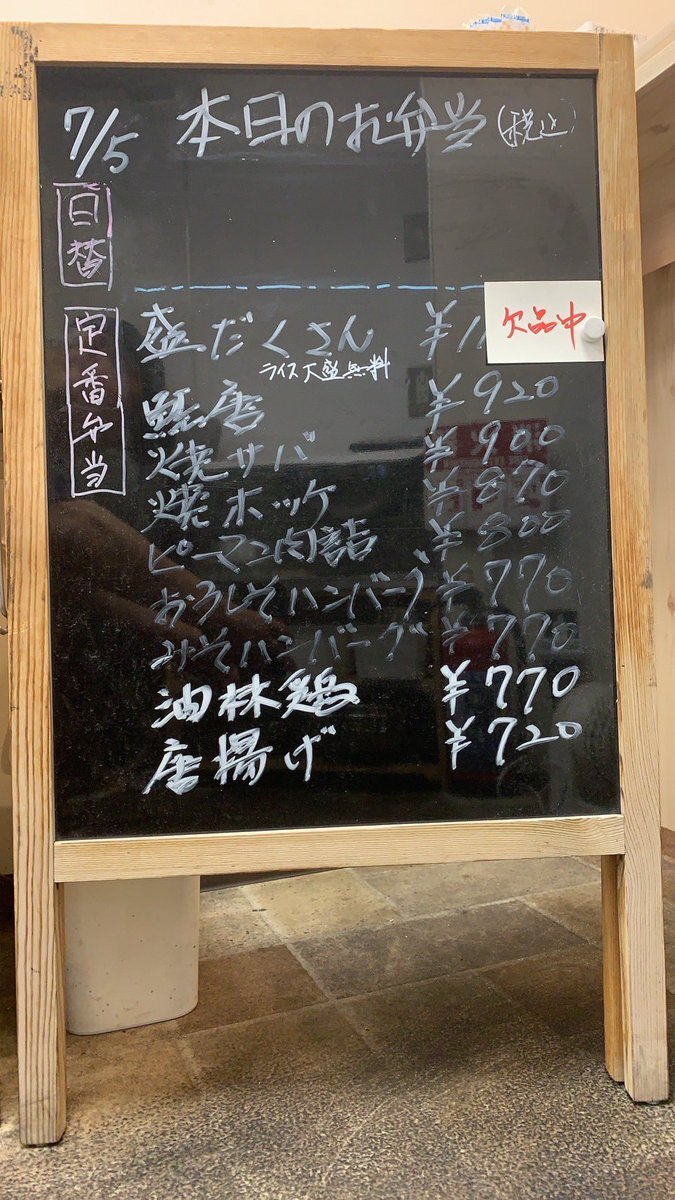 7/5 本日のお弁当(税込)
日替
定番弁当
盛だくさん ¥1
欠品中
ライス大盛無料
鮭唐 ¥920
焼サバ ¥900
焼ホッケ ¥870
ピーマン肉詰 ¥800
おろしそハンバーグ ¥770
みそハンバーグ ¥770
油林鶏 ¥770
唐揚げ ¥720